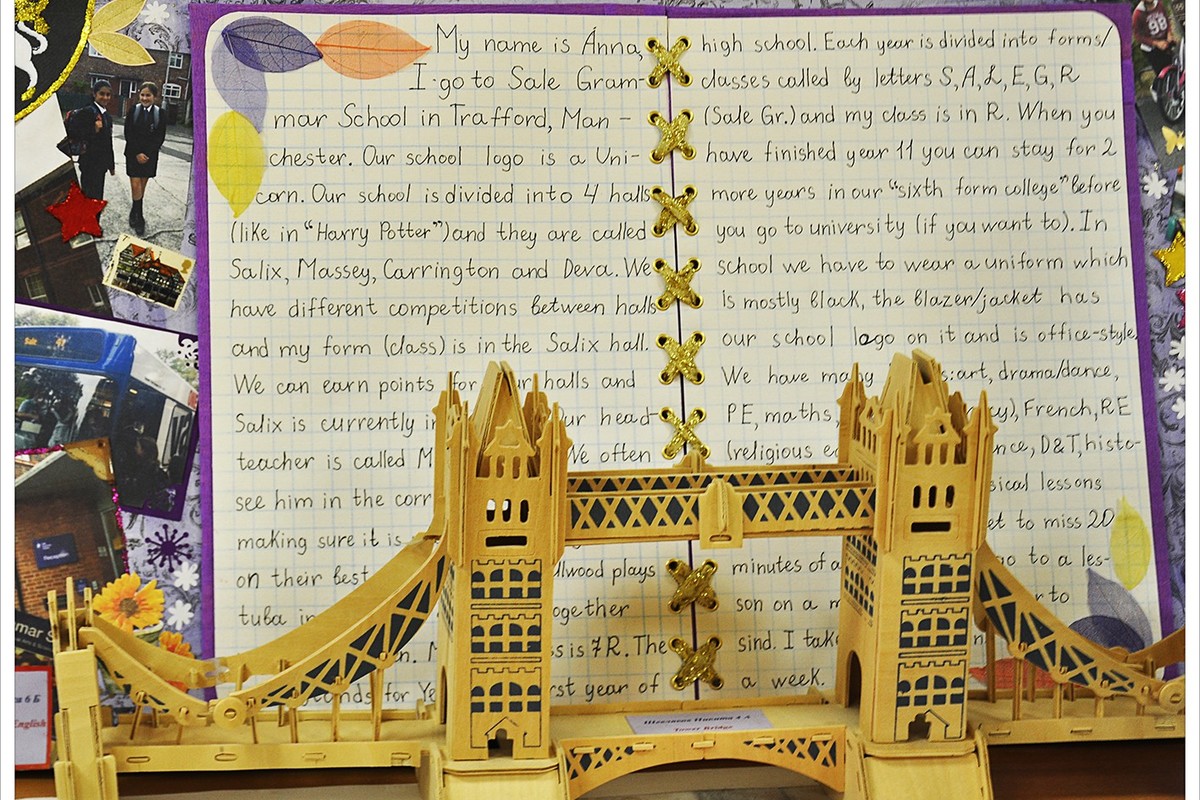 My name is Anna,
I go to Sale Gram-
mar School in Trafford, Man-
chester. Our school logo is a Uni-
corn. Our school is divided into 4 halls
(like in "Harry Potter") and they are called
Salix, Massey, Carrington and Deva. We
have different competitions between halls
and my form (class) is in the Salix hall.
We can earn points for our halls and
Salix is currently in Our head-
teacher is called M We often
see him in the corr
making sure it is
on their best llwood plays
tuba in ogether
n. M ss is 7R. The
onds for Ye rst year of
high school. Each year is divided into forms/
classes called by letters S, A, L, E, G, R
(Sale Gr.) and my class is in R. When you
have finished year 11 you can stay for 2
more years in our "sixth form college" before
you go to university (if you want to). In
school we have to wear a uniform which
is mostly black, the blazer/jacket has
our school logo on it and is office-style.
We have many s: art, drama/dance,
PE, maths, cy), French, RE
(religious e nce, D&T, histo-
sical lessons
et to miss 20
minutes of a go to a les-
son on a m r to
sind. I take
a week.
Шевляков Никита 4 А
Tower Bridge
а 6 Б
English
mar S
Sale
98